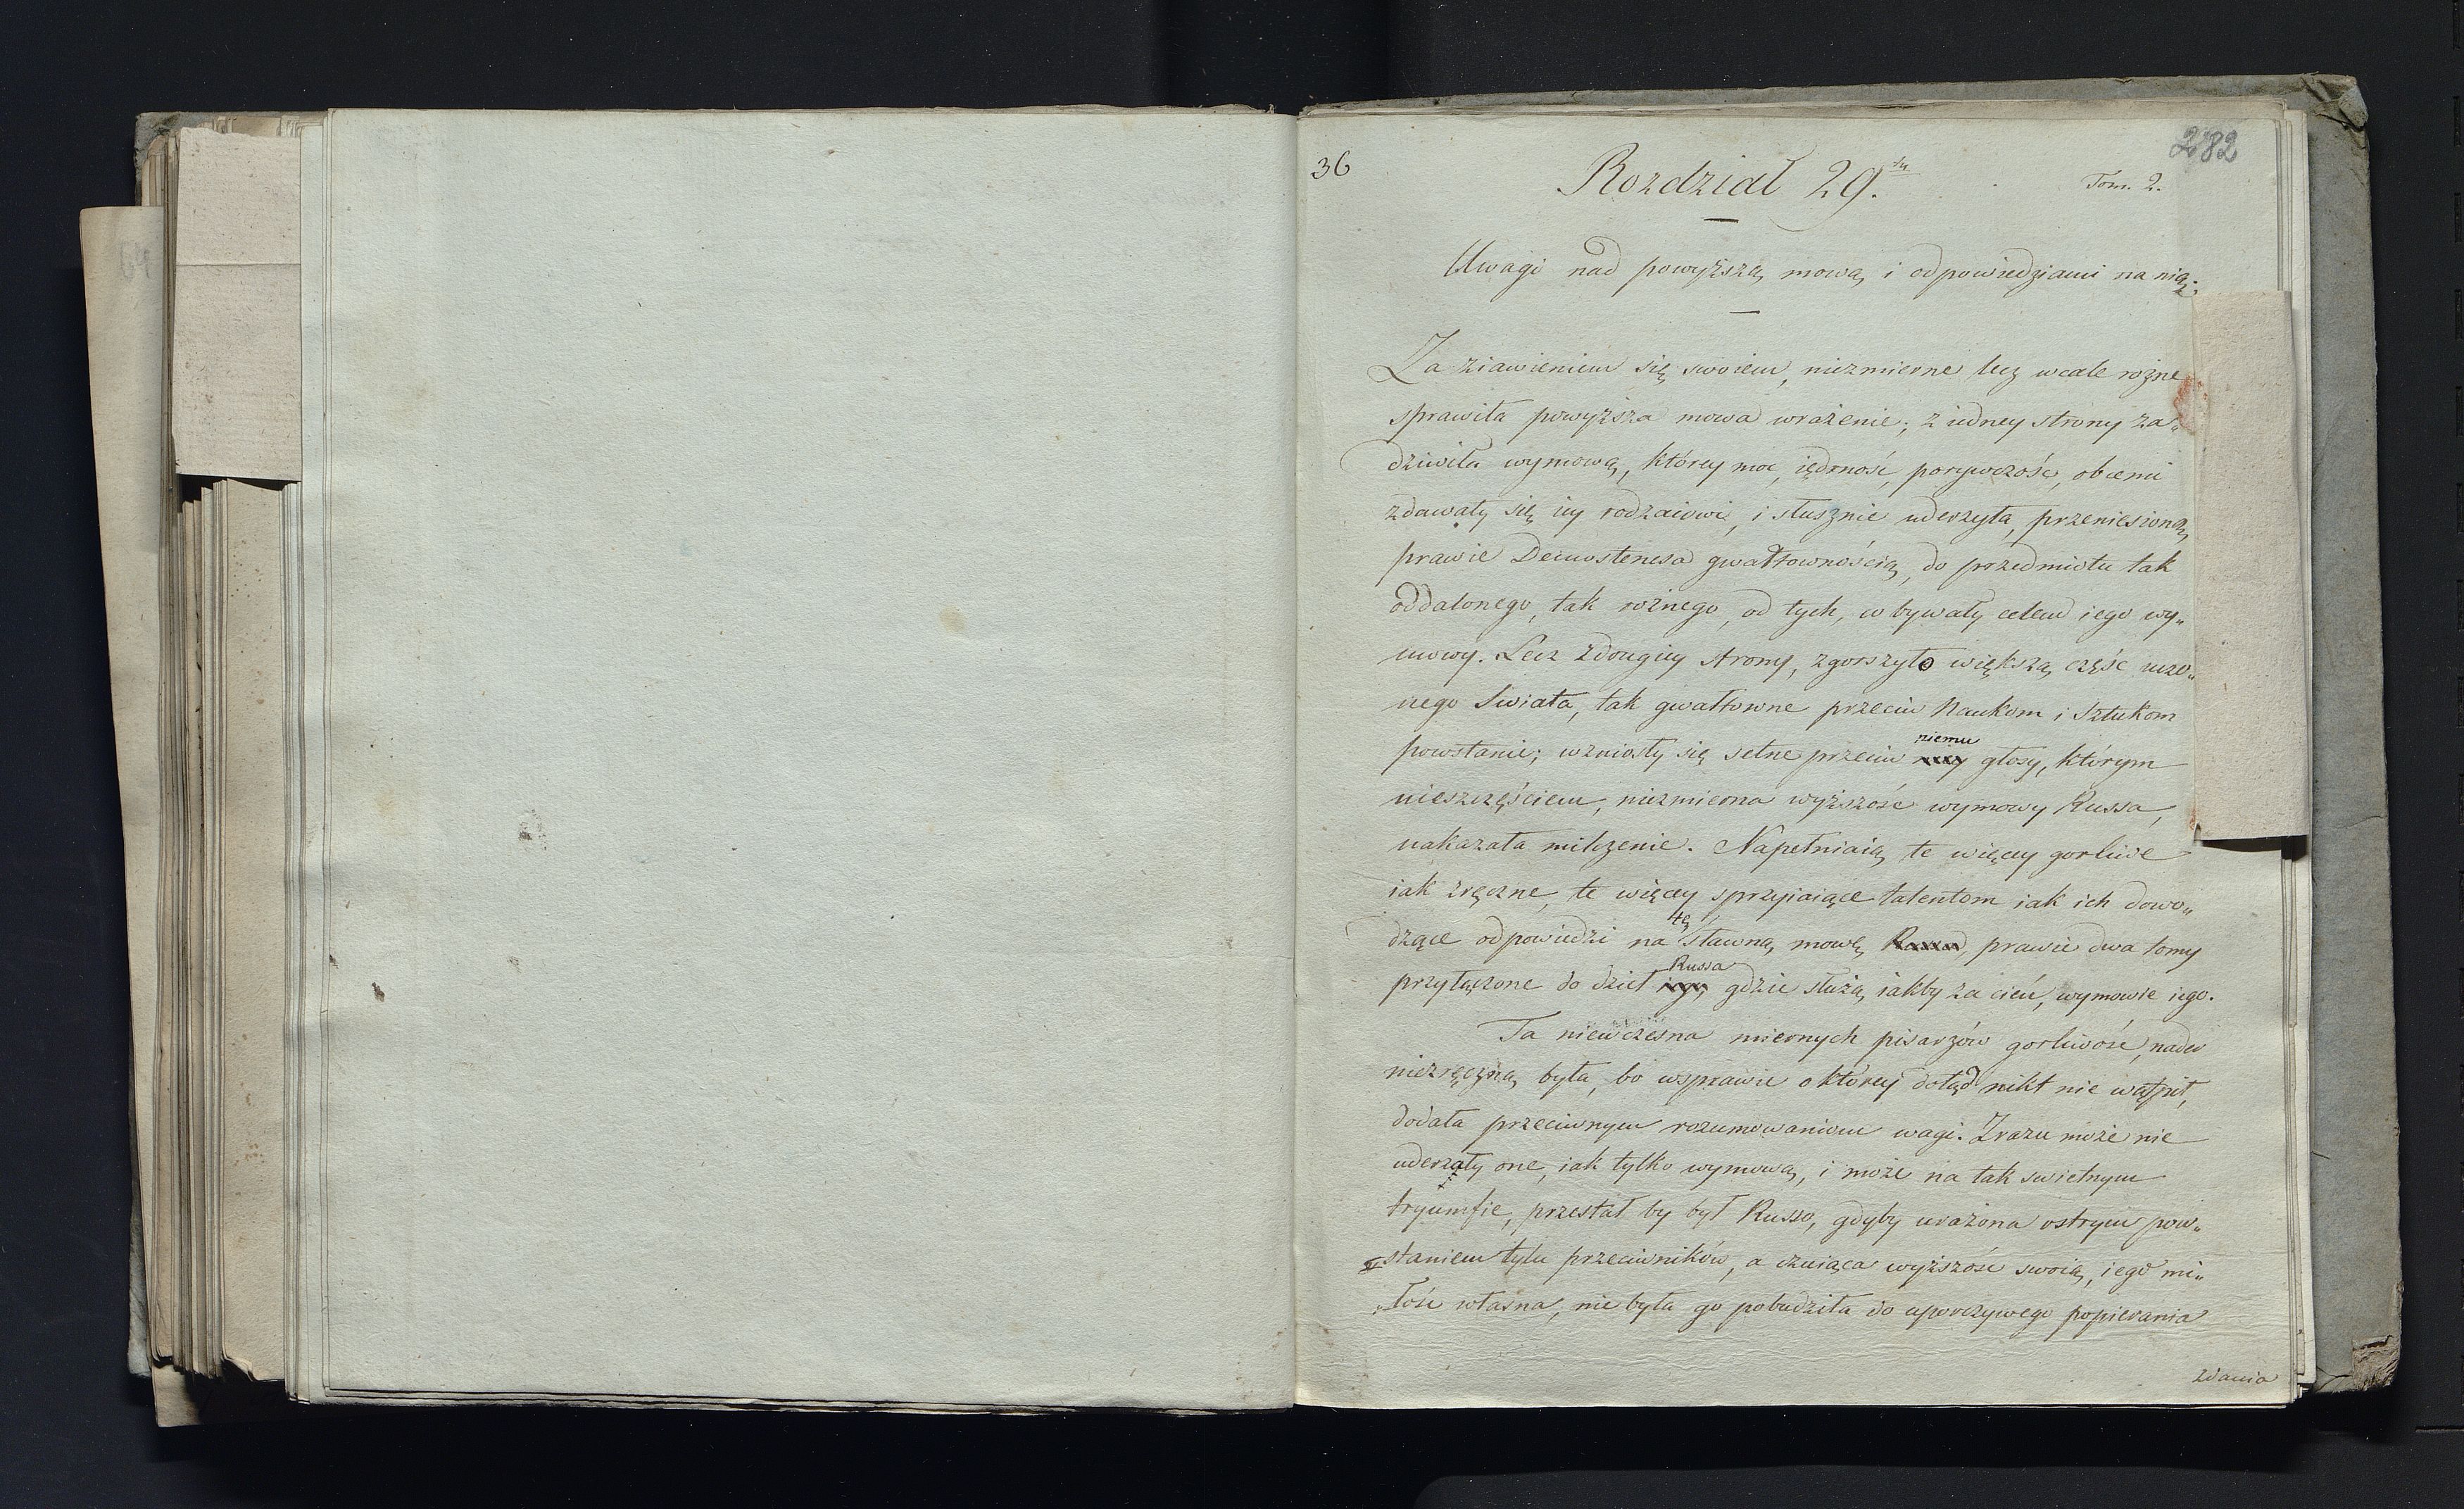 36
282
Rozdział 29.ty
Tom. 2.
Uwagi nad powyższą mową, i odpowiedziami na nią.
Za ziawieniem się swoiem, niezmierne lecz wcale rożne
sprawiła powyższa mowa wrażenie; z iedney strony za„
dziwiła wymową, którey moc, iędrność, porywczość, obcemi
zdawały się iey rodzaiowi, i słusznie uderzyła, przeniesioną
prawie Demostenesa gwałtownością, do przedmiotu tak
oddalonego, tak rożnego, od tych, co bywały celem iego wy„
mowy. Lecz z drugiey strony, zgorszyło większą część uczo„
nego Swiata, tak gwałtowne przeciw Naukom i Sztukom
powstanie; wzniosły się setne przeciw niemu głosy, którym
nieszczęściem, niezmierna wyższość wymowy Russa,
nakazała milczenie. Napełniaią te więcey gorliwe
iak zręczne, te więcey sprzyiaiące talentom iak ich dowo„
dzące odpowiedzi na tę sławną mowę prawie dwa tomy
przyłączone do dzieł Russa gdzie służą iakby za cień, wymowie iego.
Ta niewczesna miernych pisarzów gorliwość, nader
niezręczną była, bo w sprawie o którey dotąd nikt nie wątpił,
dodała przeciwnym rozumowaniom wagi. Zrazu może nie
uderzały one, iak tylko wymową, i może na tak swietnym
tryumfie, przestał by był Russo, gdyby urażona ostrym pow„
staniem tylu przeciwników, a czuiąca wyższość swoią, iego mi„
„łość własna, nie była go pobudziła do uporczywego popierania
zdania